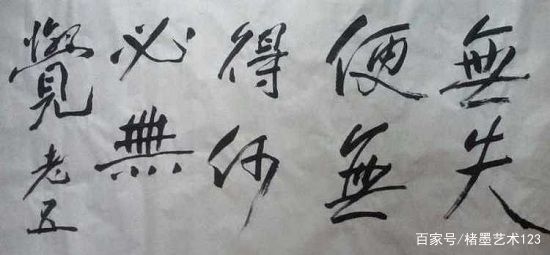 無失
便無
得何
必無
覺老五
百家号/楮墨艺术123